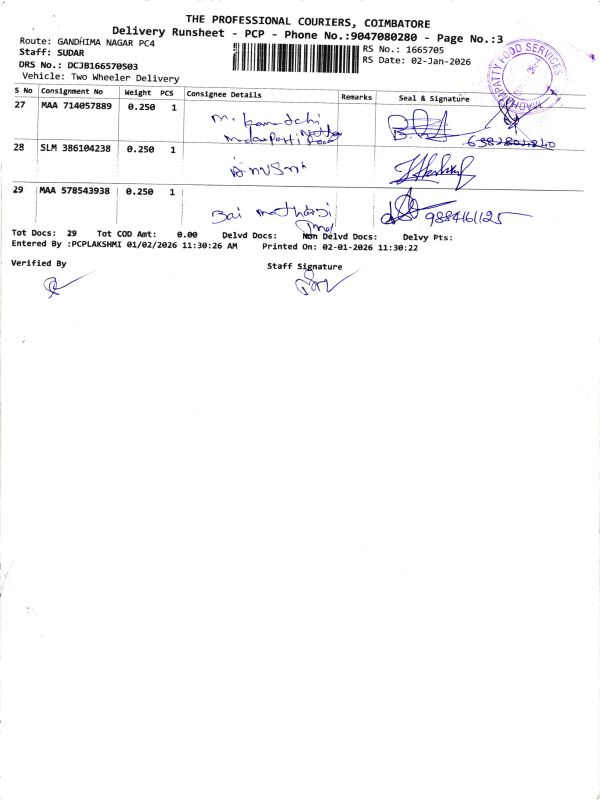 THE PROFESSIONAL COURIERS, COIMBATORE
Delivery Runsheet - PCP - Phone No.:9047080280 - Page No.:3
Route: GANDHIMA NAGAR PC4
RS No.: 1665705
Staff: SUDAR
RS Date: 02-Jan-2026
DRS No.: DCJB166570503
Vehicle: Two Wheeler Delivery
FOOD SERVICES
S No Consignment No Weight PCS Consignee Details Remarks Seal & Signature
27 MAA 714057889 0.250 1
M.
6382804840
28 SLM 386104238 0.250 1
29 MAA 578543938 0.250 1
9884161125
Tot Docs: 29 Tot COD Amt: 0.00 Delvd Docs: Non Delvd Docs: Delvy Pts:
Entered By :PCPLAKSHMI 01/02/2026 11:30:26 AM Printed On: 02-01-2026 11:30:22
Verified By Staff Signature